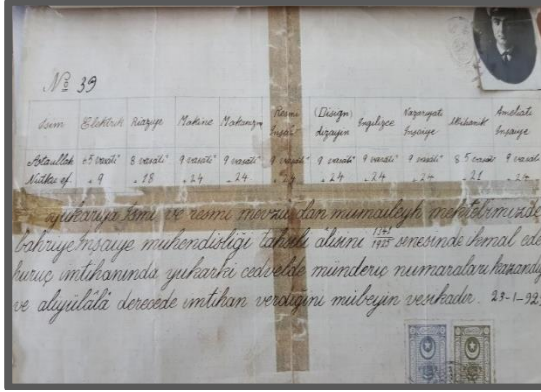 № 39
isim Elektrik Riaziye Makine Makanizm Resmi İnşai (Disign) dizayn İngilizce Nazariyati İnşaiye Mihanik Ameliati İnşaiye
Ataullah 8 vasati 9 vasati 9 vasati 9 vasati 9 vasati 9 vasati 9 vasati 8 5 vasati 9 vasati
Nutku ef. 9 18 24 24 24 24 24 21 24
yukarıya ismi ve resmi mevzu dan mumaileyh mektebimizde
bahriye inşaiye mühendisliği tahsili âlisini 1341 1925 senesinde ikmal ede
huruç imtihanında yukarki cedvelde münderiç numaraları kazandığ
ve aliyülâlâ derecede imtihan verdiğini mübeyin vesikadır. 23-1-92